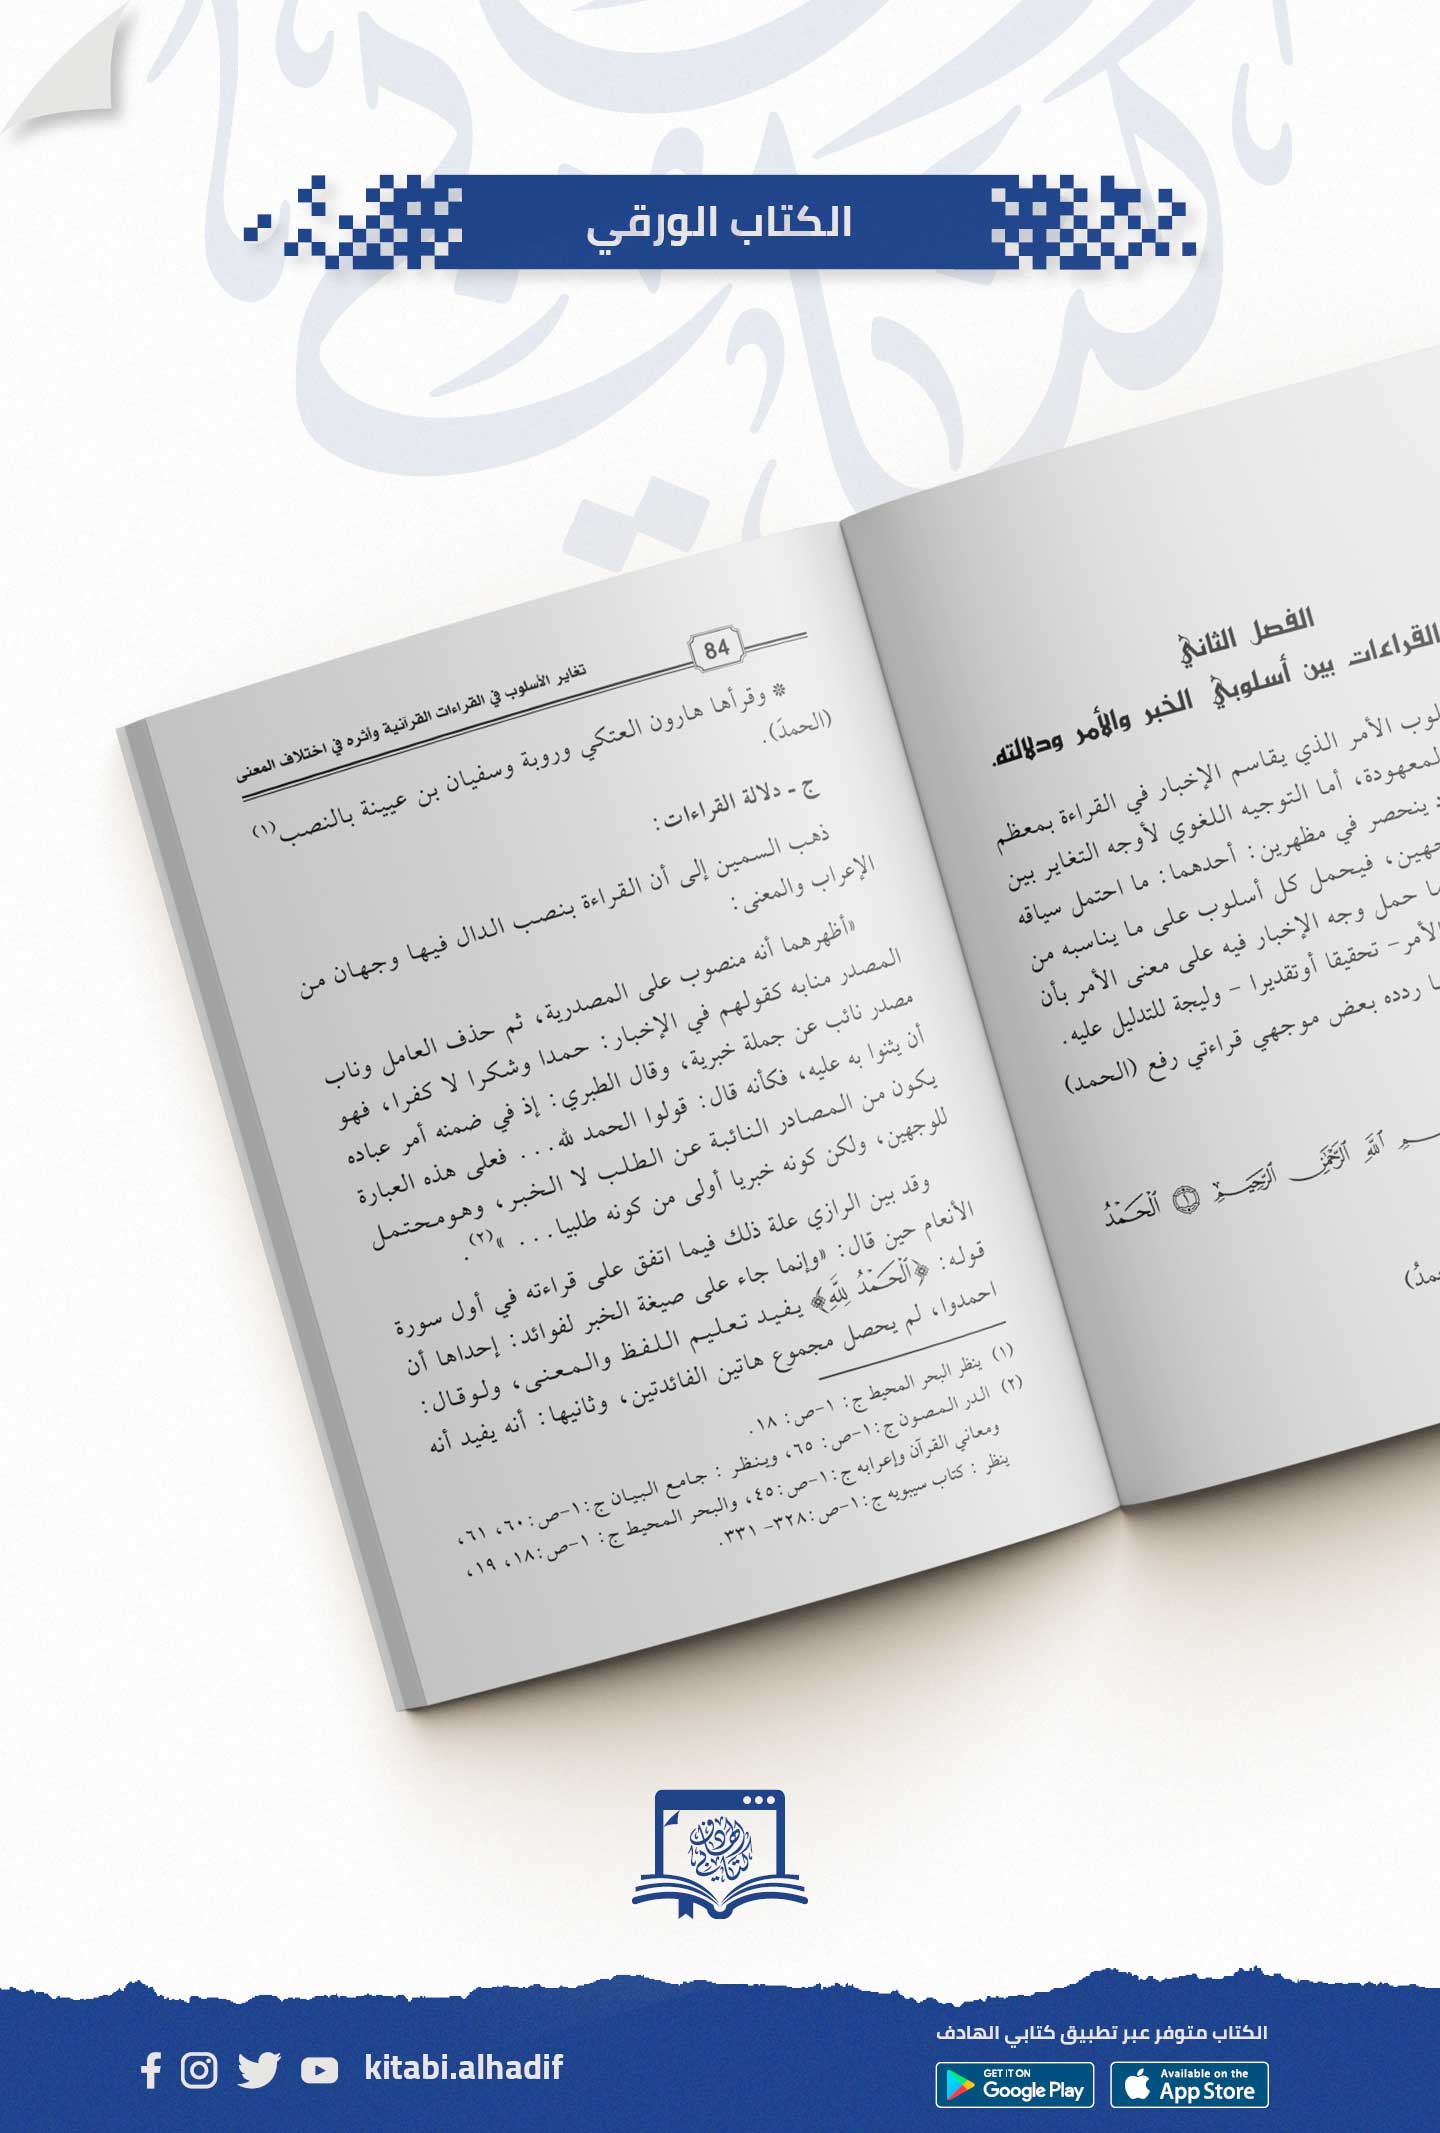 الكتاب الورقي
الفصل الثاني
القراءات بين أسلوبي الخبر والأمر ودلالته.
الأمر الذي يقاسم الإخبار في القراءة بمعظم
المعهودة، أما التوجيه اللغوي لأوجه التغاير بين
ينحصر في مظهرين: أحدهما: ما احتمل سياقه
فيحمل كل أسلوب على ما يناسبه من
حمل وجه الإخبار فيه على معنى الأمر بأن
الأمر- تحقيقا أوتقديرا - وليجة للتدليل عليه.
ردده بعض موجهي قراءتي رفع (الحمد)
ٱللَّهِ ٱلرَّحْمَٰنِ ٱلرَّحِيمِ ۝١ ٱلْحَمْدُ
84
تغاير الأسلوب في القراءات القرآنية وأثره في اختلاف المعنى
* وقرأها هارون العتكي وروبة وسفيان بن عيينة بالنصب(١)
(الحمدَ).
ج - دلالة القراءات:
ذهب السمين إلى أن القراءة بنصب الدال فيها وجهان من
الإعراب والمعنى:
«أظهرهما أنه منصوب على المصدرية، ثم حذف العامل وناب
المصدر منابه كقولهم في الإخبار: حمدا وشكرا لا كفرا، فهو
مصدر نائب عن جملة خبرية، وقال الطبري: إذ في ضمنه أمر عباده
أن يثنوا به عليه، فكأنه قال: قولوا الحمد لله... فعلى هذه العبارة
يكون من المصادر النائبة عن الطلب لا الخبر، وهومحتمل
للوجهين، ولكن كونه خبريا أولى من كونه طلبيا... »(٢).
وقد بين الرازي علة ذلك فيما اتفق على قراءته في أول سورة
الأنعام حين قال: «وإنما جاء على صيغة الخبر لفوائد: إحداها أن
قوله: ﴿ٱلْحَمْدُ لِلَّهِ﴾ يفيد تعليم اللفظ والمعنى، ولوقال:
احمدوا، لم يحصل مجموع هاتين الفائدتين، وثانيها: أنه يفيد أنه
(١) ينظر البحر المحيط ج: ١-ص: ١٨.
(٢) الدر المصون ج:١-ص: ٦٥، وينظر : جامع البيان ج:١-ص:٦٠، ٦١،
ومعاني القرآن وإعرابه ج:١-ص:٤٥، والبحر المحيط ج: ١-ص:١٨، ١٩،
ينظر : كتاب سيبويه ج:١-ص:٣٢٨- ٣٣١.
كتابي الهادف
الكتاب متوفر عبر تطبيق كتابي الهادف
kitabi.alhadif
GET IT ON
Google Play
Available on the
App Store